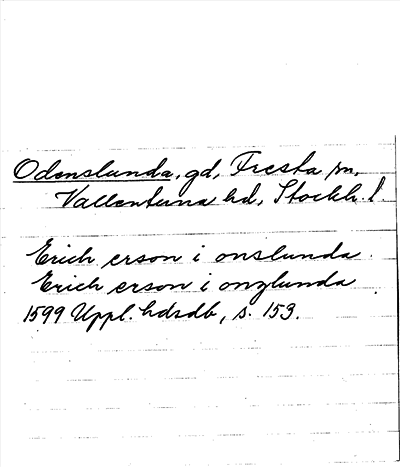 Odenslunda, gd, Fresta sn,
Vallentuna hd, Stockh. l.
Erich erson i onslunda.
Erich erson i onzlunda
1599 Uppl. hdrdb, s. 153.